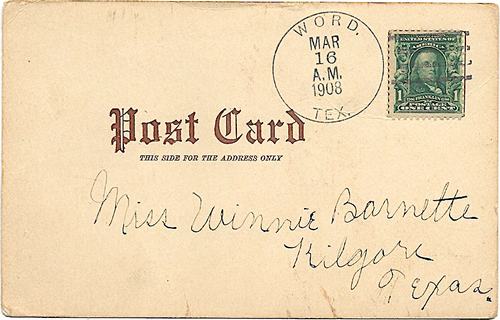 WORD.
MAR
16
A.M.
1908
TEX.
UNITED STATES OF
AMERICA
1 POSTAGE 1
ONE CENT
Post Card
THIS SIDE FOR THE ADDRESS ONLY
Miss Winnie Barnette
Kilgore
Texas.